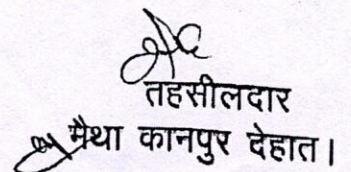 तहसीलदार
मैथा कानपुर देहात।